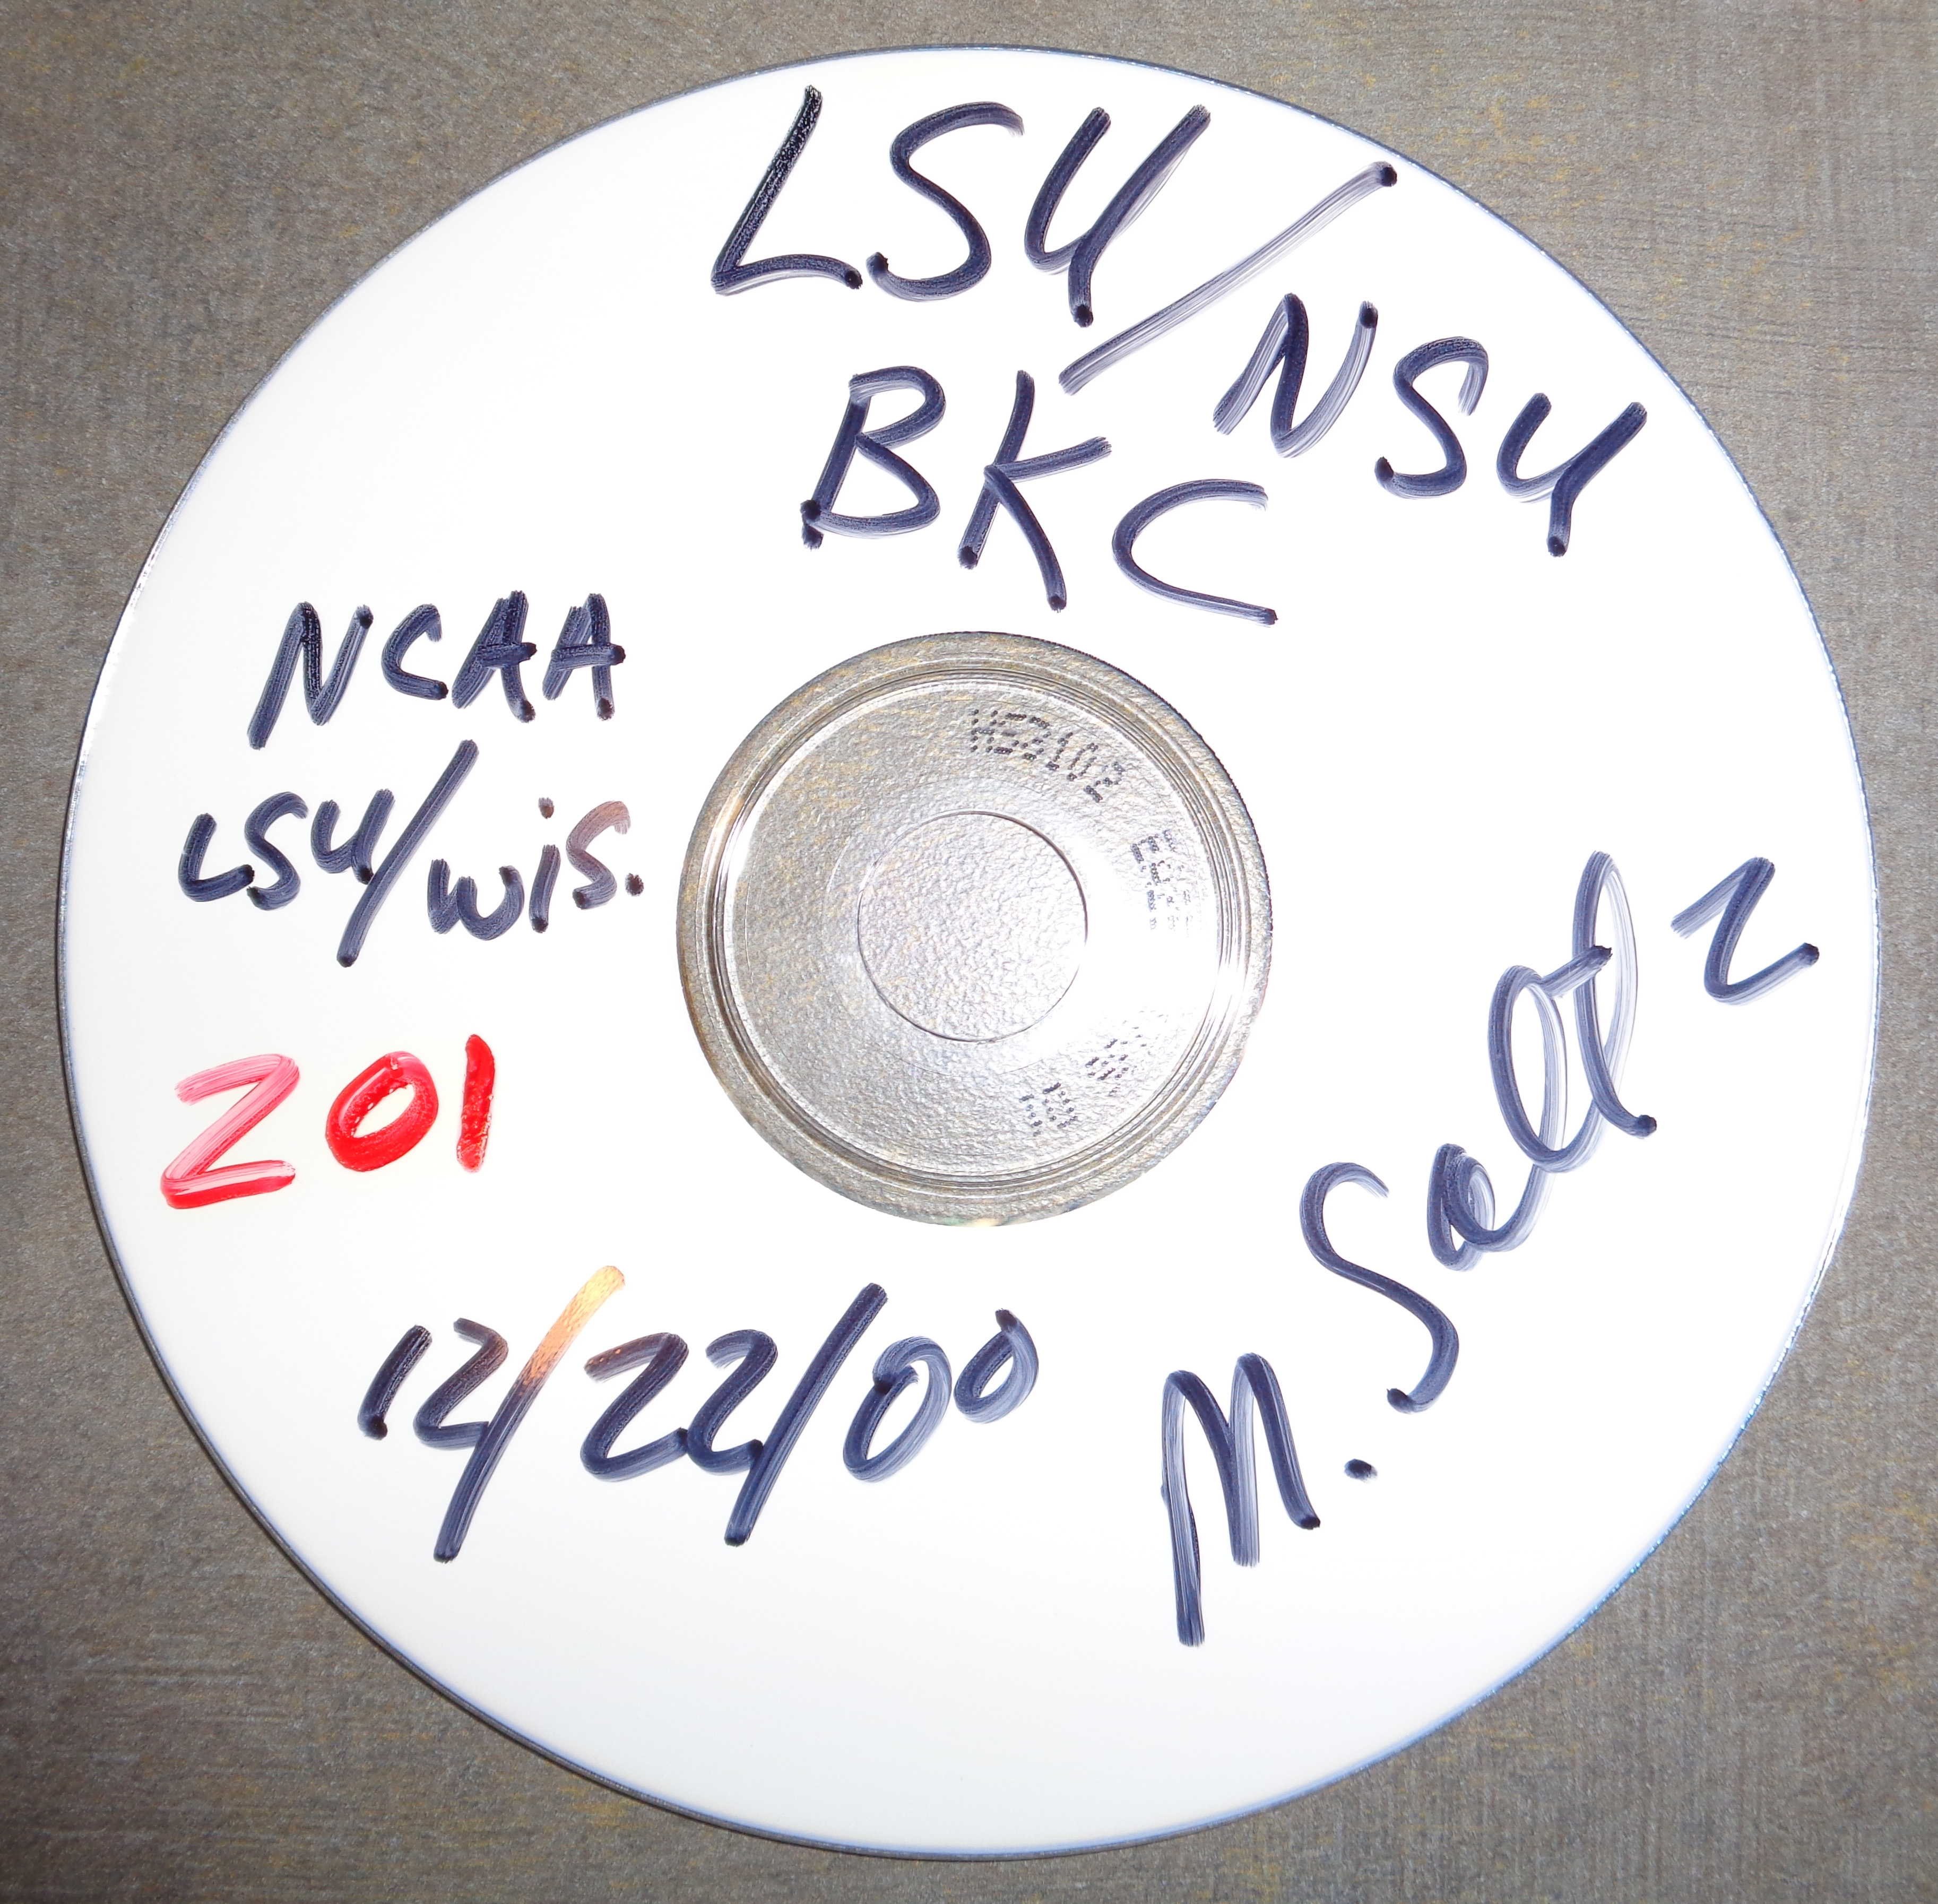 LSU/NSU
BKC
NCAA
LSU/wis.
201
12/22/00
M. Saltz